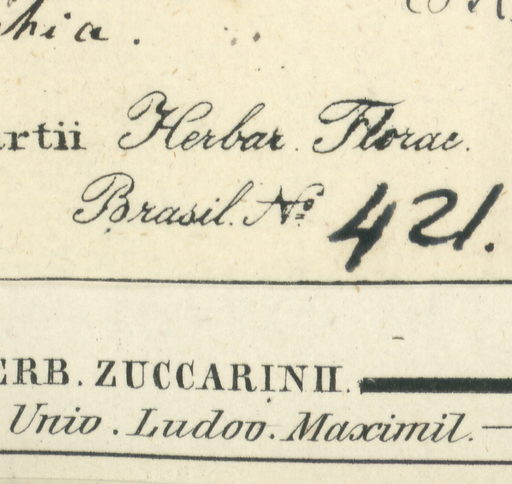 hia.
rtii Herbar. Florae.
Brasil. No. 421.
ERB. ZUCCARINII.
Univ. Ludov. Maximil.